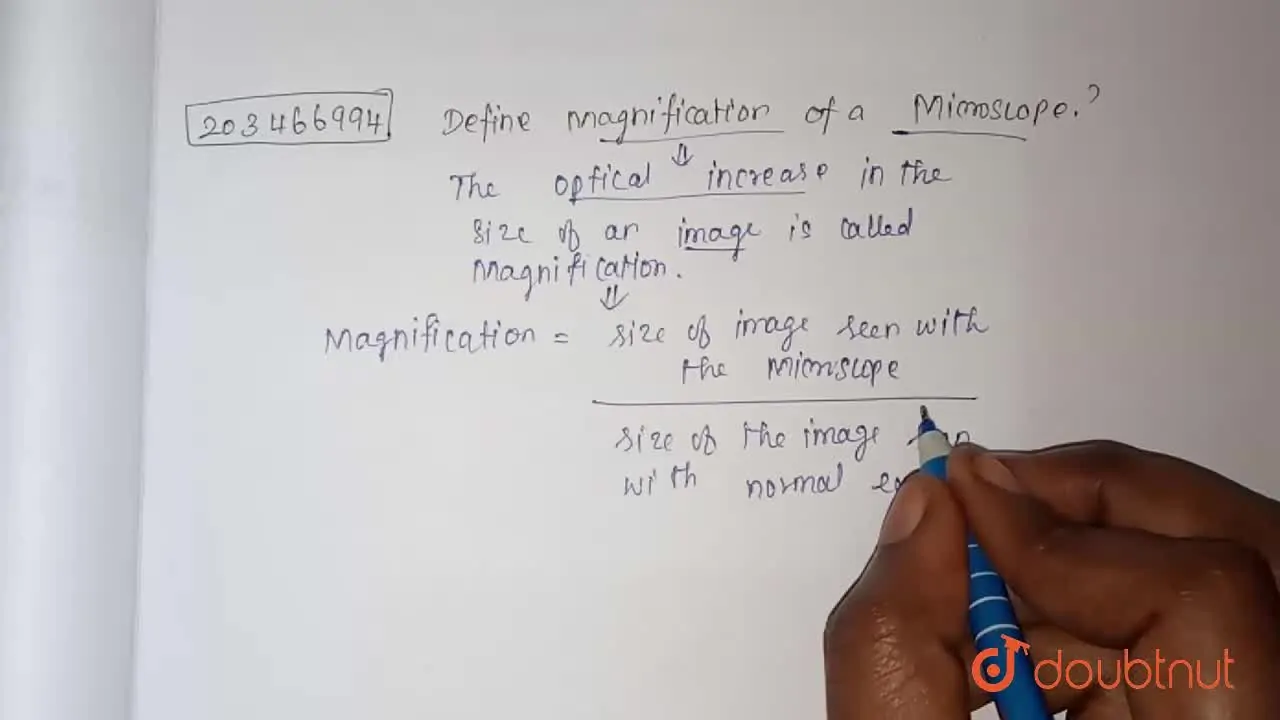 203466994 Define Magnification of a Microscope.?
The optical increase in the
size of an image is called
Magnification.
Magnification = size of image seen with
the Microscope
size of the image
with normal
doubtnut